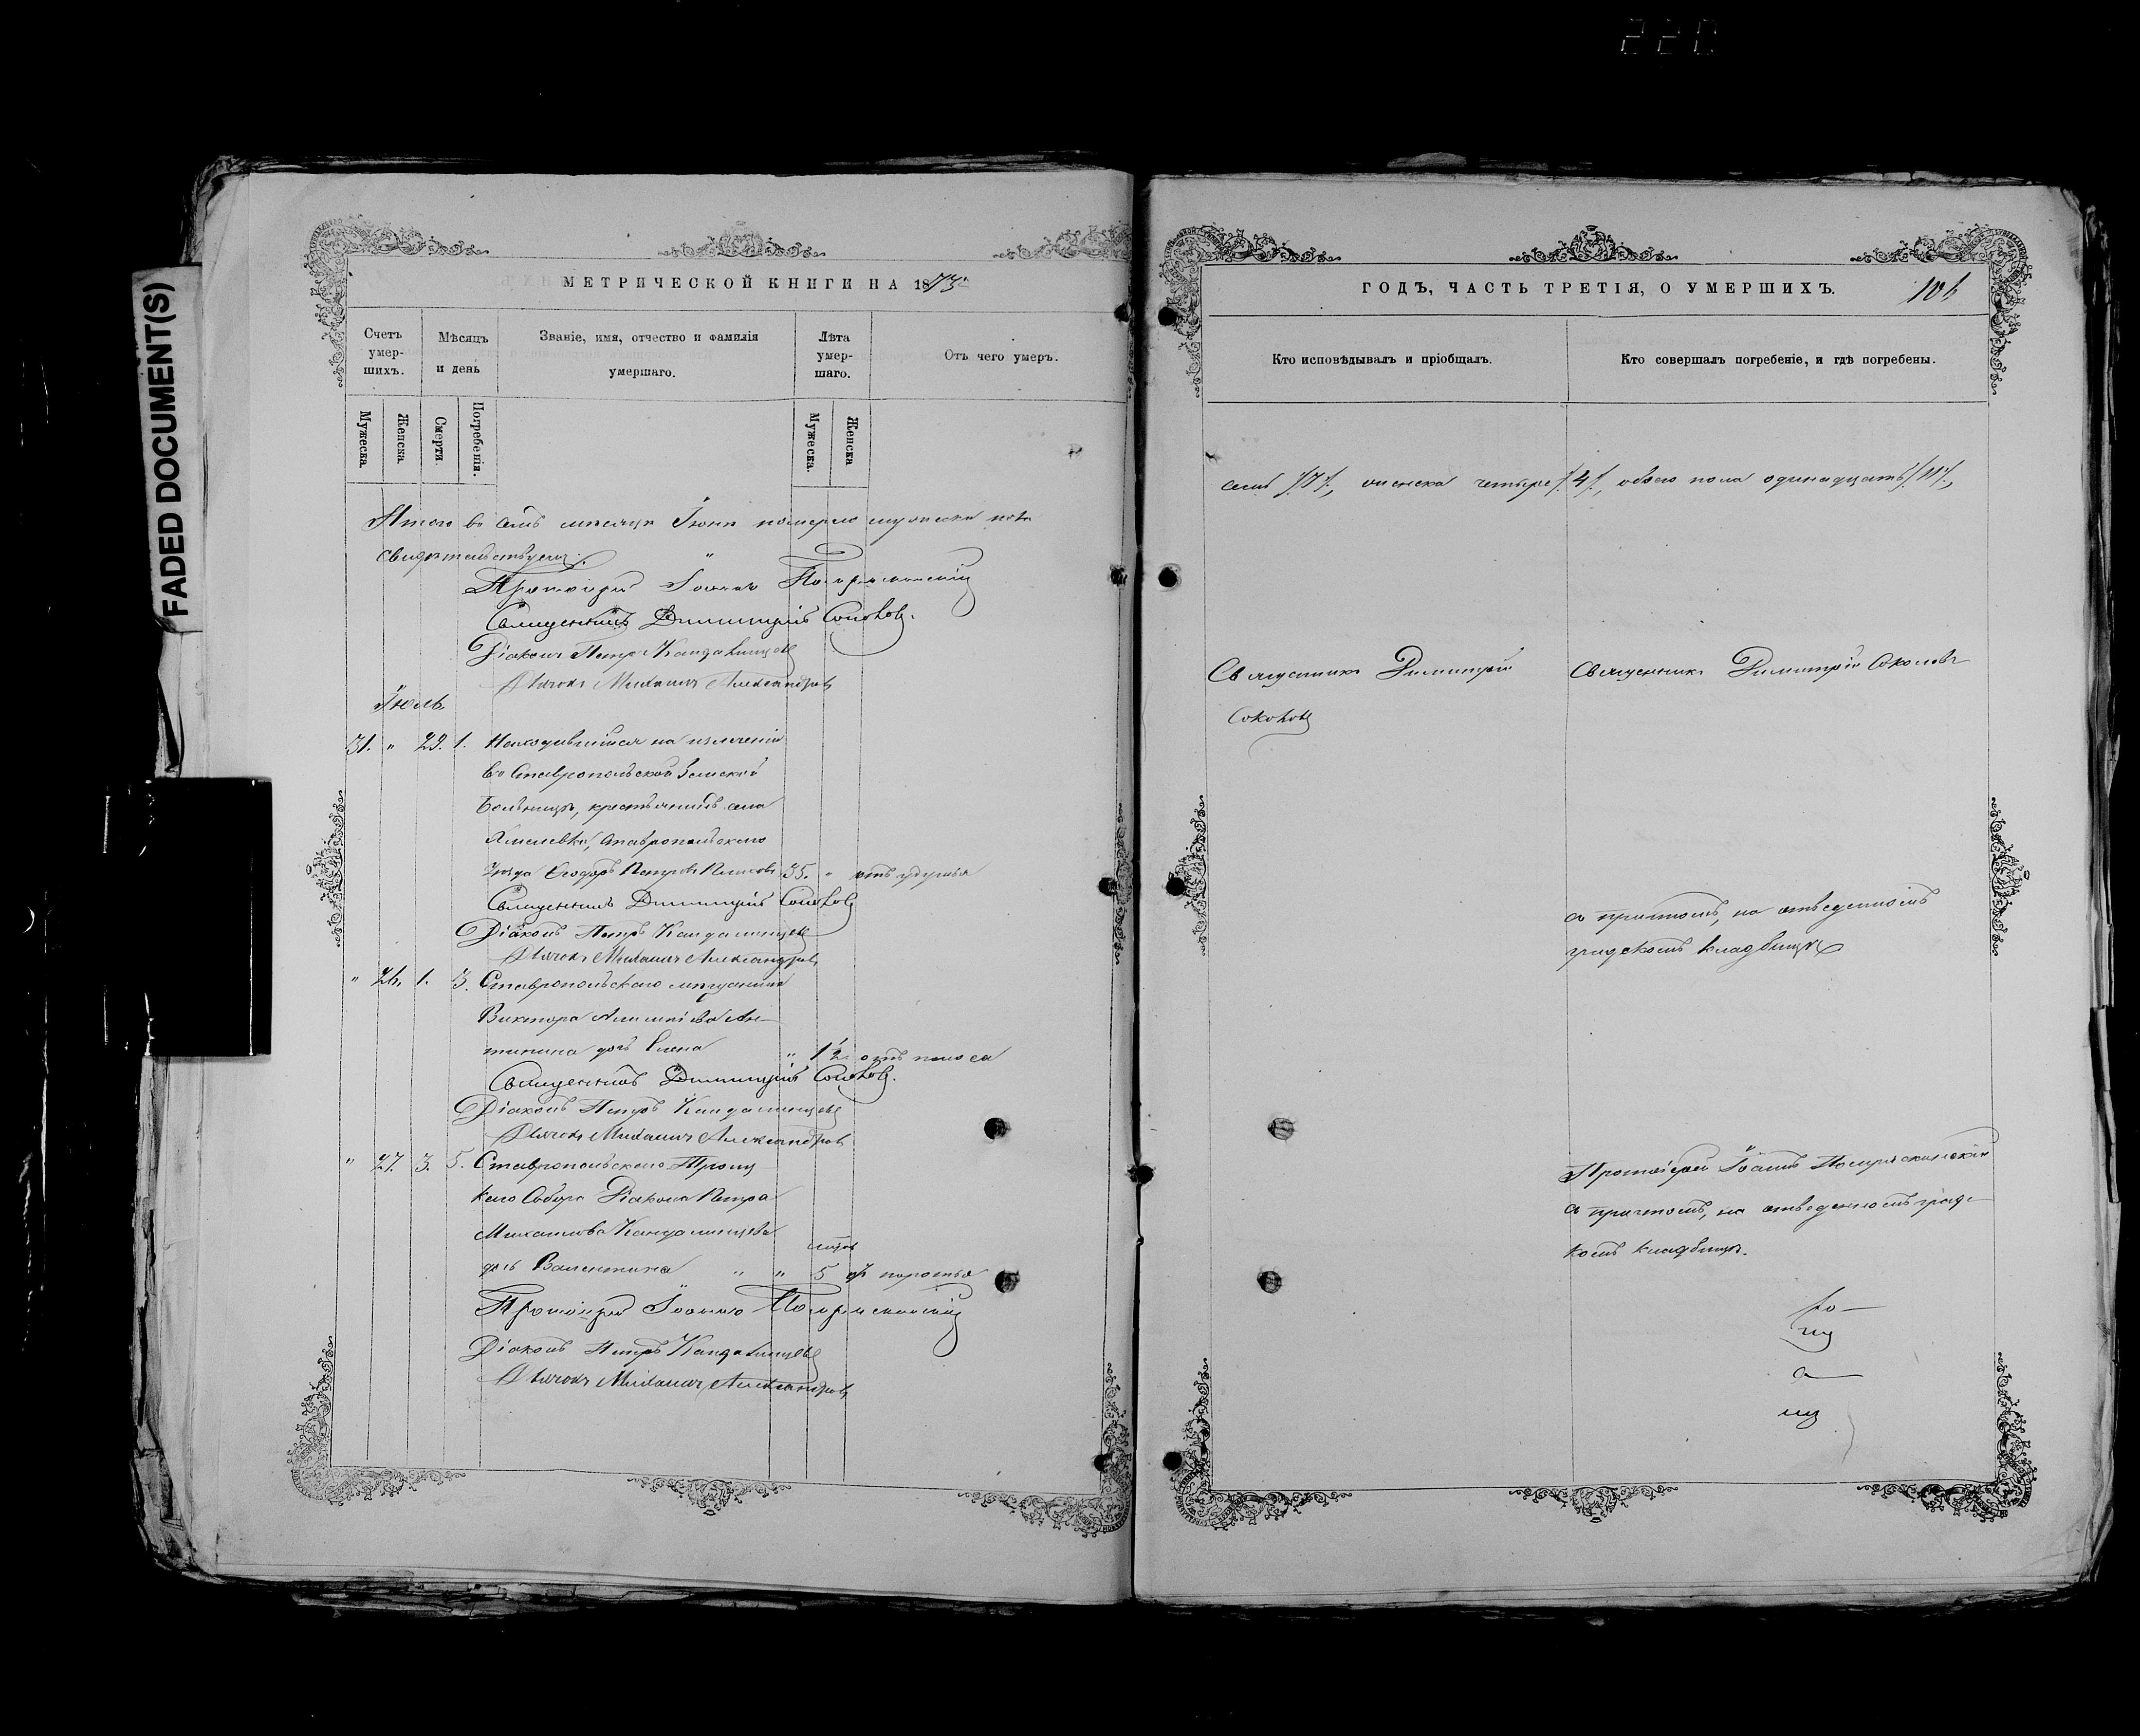 220
FADED DOCUMENT(S)
МЕТРИЧЕСКОЙ КНИГИ НА 1873
Счетъ умер-шихъ.
Мѣсяцъ и день
Званіе, имя, отчество и фамилія умершаго.
Лѣта умер-шаго.
Отъ чего умеръ.
Мужеска.
Женска.
Смерти.
Погребенія.
Мужеска.
Женска
Итого въ семъ мѣсяцѣ Іюнѣ померло мужеска пола
свидѣтельствуемъ:
Протоіерей Іоаннъ
Священникъ Димитрій Соколовъ.
Діаконъ Петръ Кандалинцевъ
Михаилъ Александровъ
Іюль
31. " 29. 1. Находившійся на излеченіи
въ Ставропольской Земской
больницѣ, крестьянинъ села
Ставропольскаго
уѣзда Ѳедоръ Петровъ 35. " отъ удушья
Священникъ Димитрій Соколовъ
Діаконъ Петръ Кандалинцевъ
Михаилъ Александровъ
" 26. 1. 3. Ставропольскаго мѣщанина
Виктора Ан-
типина дочь Елена " 1½ отъ поноса
Священникъ Димитрій Соколовъ.
Діаконъ Петръ Кандалинцевъ
Михаилъ Александровъ
" 27. 3. 5. Ставропольскаго Троиц-
каго Собора Діакона Петра
Михаилова Кандалинцева
дочь Валентина " " 5 мѣсяц.
Протоіерей Іоаннъ
Діаконъ Петръ Кандалинцевъ
Михаилъ Александровъ
ГОДЪ, ЧАСТЬ ТРЕТІЯ, О УМЕРШИХЪ.
106
Кто исповѣдывалъ и пріобщалъ.
Кто совершалъ погребеніе, и гдѣ погребены.
семь /7/, женска четыре /4/, обоего пола одинадцать /11/,
Священникъ Димитрій
Соколовъ
Священникъ Димитрій Соколовъ
съ причтомъ, на отведенномъ
градскомъ кладбищѣ
Протоіерей Іоаннъ
съ причтомъ, на отведенномъ град-
комъ кладбищѣ.